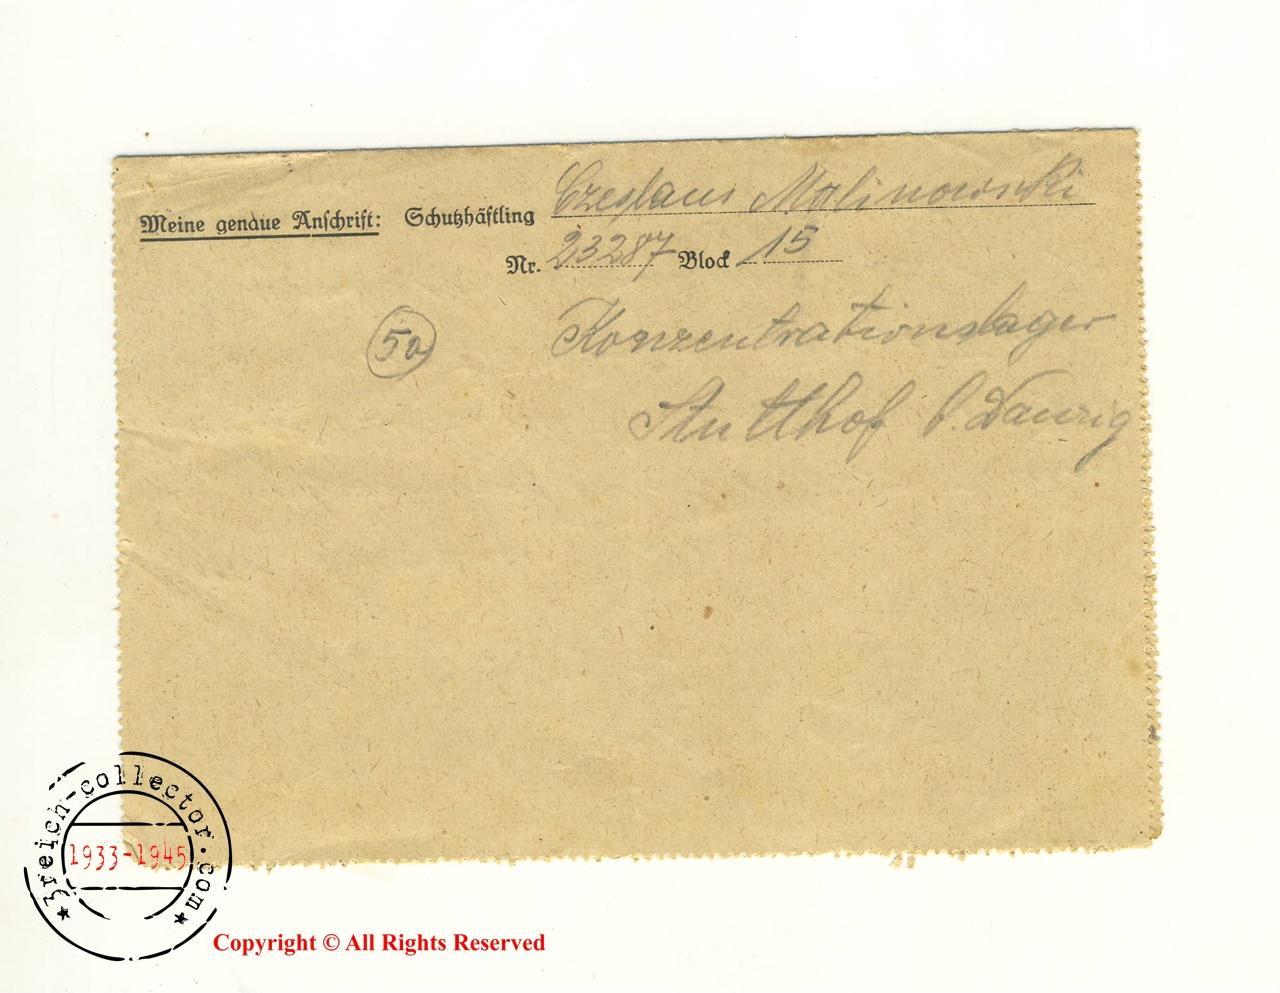 Meine genaue Anschrift: Schutzhäftling Czeslaus Malinowski
Nr. 23287 Block 15
50
Konzentrationslager
Stutthof b. Danzig
3reich-collector.com
1933-1945
Copyright © All Rights Reserved